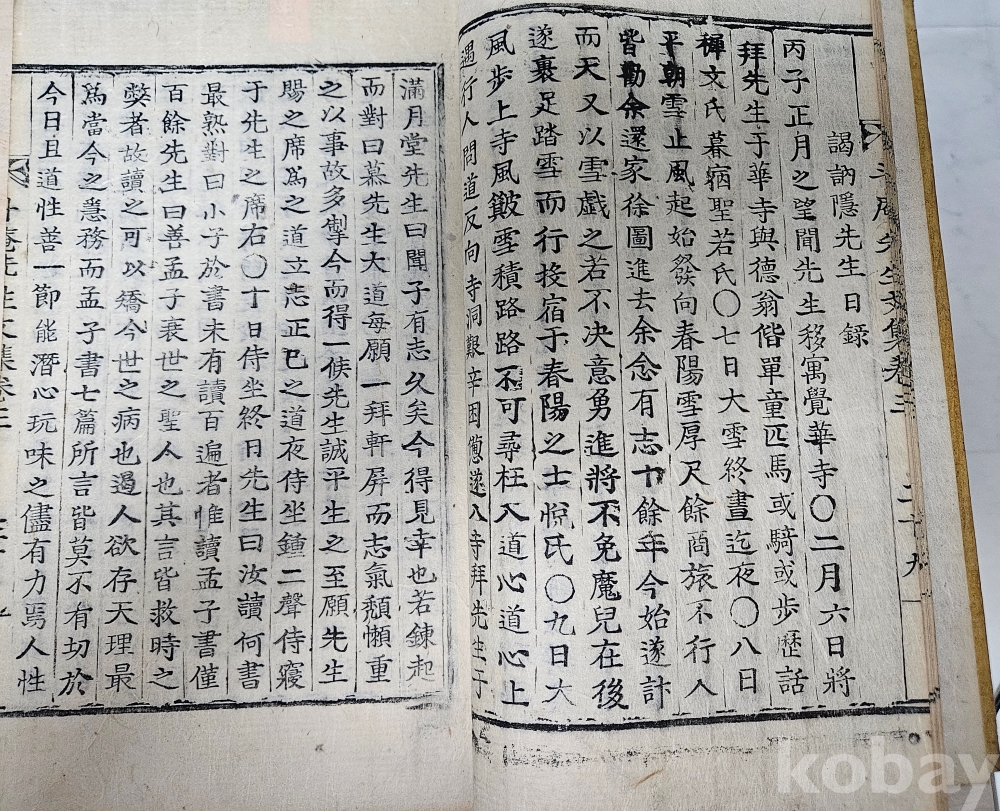 謁訥隱先生日錄
丙子正月之望間先生移寓覺華寺〇二月六日將
拜先生于華寺與德翁偕單童匹馬或騎或步歷話
穉文氏暮宿聖若氏〇七日大雪終晝迄夜〇八日
平朝雪止風起始發向春陽雪厚尺餘商旅不行人
皆勸余還家徐圖進去余念有志十餘年今始遂計
而天又以雪戲之若不决意勇進將不免魔兒在後
遂裹足踏雪而行投宿于春陽之士悅氏〇九日大
風步上寺風皷雪積路路不可尋枉入道心道心上
遇行人問道反向寺洞艱辛困憊遂入寺拜先生于
滿月堂先生曰聞子有志久矣今得見幸也若鍊起
而對曰慕先生大道每願一拜軒屏而志氣頹懶重
之以事故多掣今而得一候先生誠平生之至願先生
賜之席爲之道立志正己之道夜侍坐鍾二聲侍寢
于先生之席右〇十日侍坐終日先生曰汝讀何書
最熟對曰小子於書未有讀百遍者惟讀孟子書僅
百餘先生曰善孟子衰世之聖人也其言皆救時之
獘者故讀之可以矯今世之病也遏人欲存天理最
爲當今之急務而孟子書七篇所言皆莫不有切於
今日且道性善一節能潛心玩味之儘有力焉人性
先生文集卷三
kobay